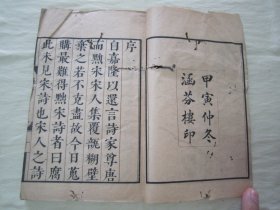 甲寅仲冬
涵芬樓印
序
自嘉隆以還言詩家尊唐
而黜宋宋人集覆瓿糊壁
棄之若不克盡故今日蒐
購最難得黜宋詩者曰腐
此未見宋詩也宋人之詩